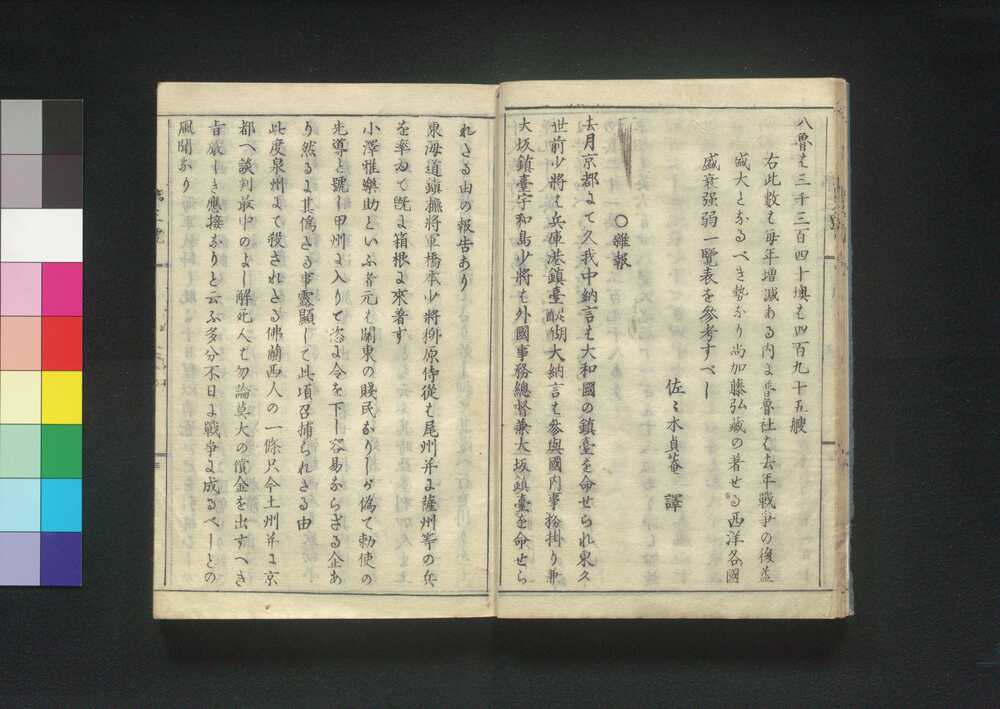 八魯は三千三百四十墺は四百九十五艘
右此數は毎年増減ある内よ普魯社は去年戰争の後益
盛大となるべき勢なり尚加藤弘藏の著せる西洋各國
盛衰强弱一覽表を參考すべし
佐々木真菴 譯
〇雜報
去月京都よて久我中納言は大和國の鎮臺を命せられ東久
世前少將は兵庫港鎮臺醍醐大納言は參與國内事務掛り兼
大坂鎮臺宇和島少將は外國事務總督兼大坂鎮臺を命せら
れたる由の報告あり
東海道鎮撫將軍橋本少將栁原侍從は尾州并よ薩州等の兵
を率ゐて既よ箱根よ來着す
小澤雅樂助といふ者元は關東の賤民なりしが偽て勅使の
先導と號し甲州よ入りて恣よ令を下し容易ならざる企あ
り然るよ其偽たる事露顯して此頃召捕られたる由
此度泉州よて殺されたる佛蘭西人の一條只今土州并よ京
都へ談判最中のよし解死人は勿論莫大の償金を出すへき
旨嚴しき應接なりと云ふ多分不日よ戰争よ成るべしとの
風聞なり